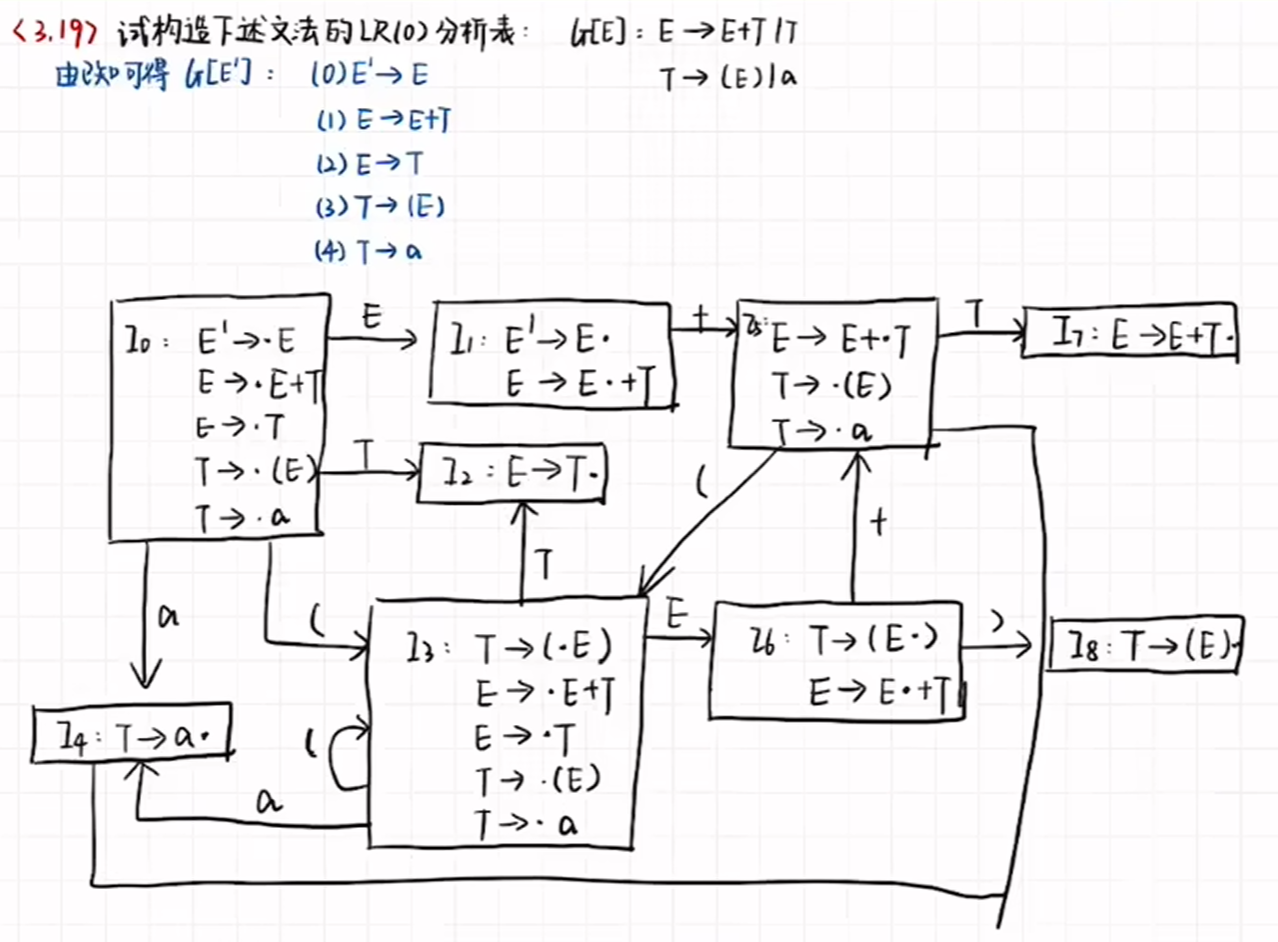 <3.19> 试构造下述文法的LR(0)分析表: G[E]: E→E+T|T
T→(E)|a
由已知可得 G[E']: (0)E'→E
(1) E→E+T
(2) E→T
(3) T→(E)
(4) T→a
I0: E'→·E
E→·E+T
E→·T
T→·(E)
T→·a
E
I1: E'→E·
E→E·+T
+
I5: E→E+·T
T→·(E)
T→·a
T
I7: E→E+T·
T
I2: E→T·
(
+
T
a
(
I3: T→(·E)
E→·E+T
E→·T
T→·(E)
T→·a
E
I6: T→(E·)
E→E·+T
)
I8: T→(E)·
I4: T→a·
(
a